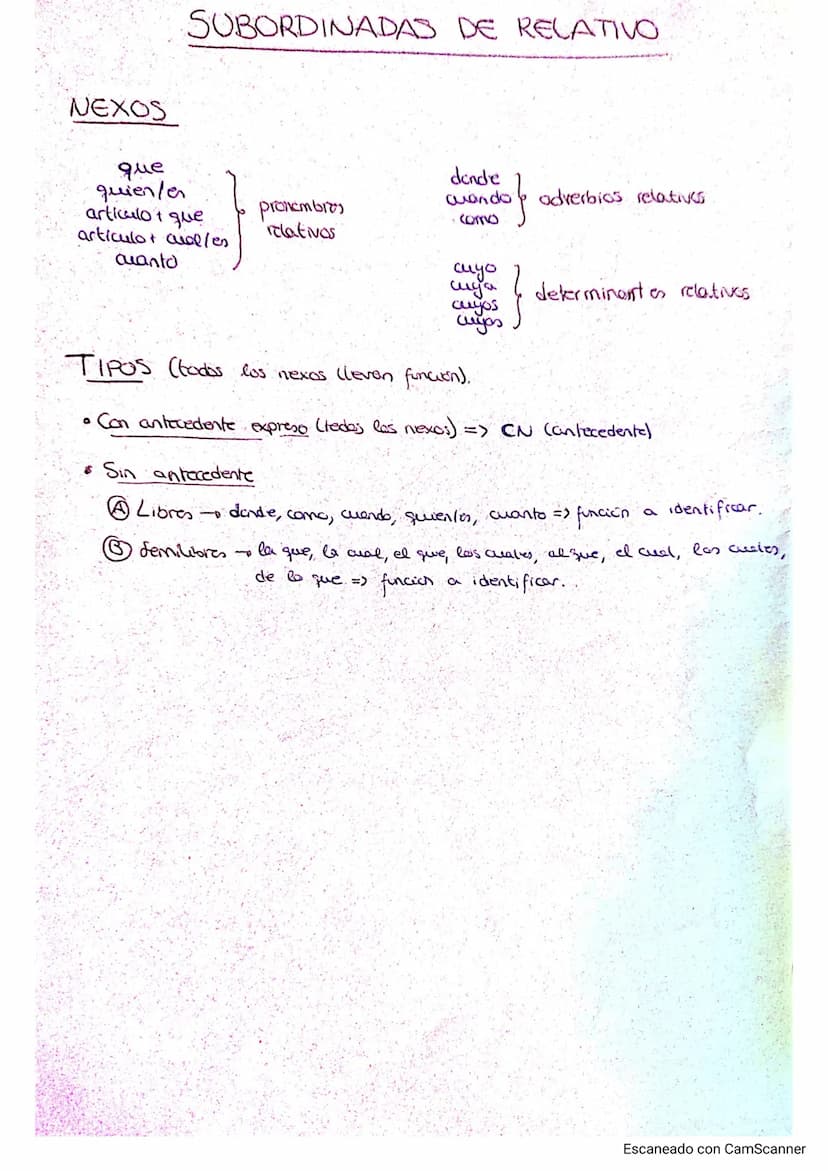 SUBORDINADAS DE RELATIVO
NEXOS
que
quien/es
artículo + que
artículo + cual/es
cuanto
pronombres
relativos
donde
cuando
como
adverbios relativos
cuyo
cuya
cuyos
cuyas
determinantes relativos
TIPOS (todos los nexos llevan función).
• Con antecedente expreso (todos los nexos) => CN (antecedente)
• Sin antecedente
Ⓐ Libres → donde, como, cuando, quien/es, cuanto => función a identificar.
Ⓑ Semilibres → la que, la cual, el que, las cuales, al que, el cual, los cuales,
de lo que => función a identificar.
Escaneado con CamScanner